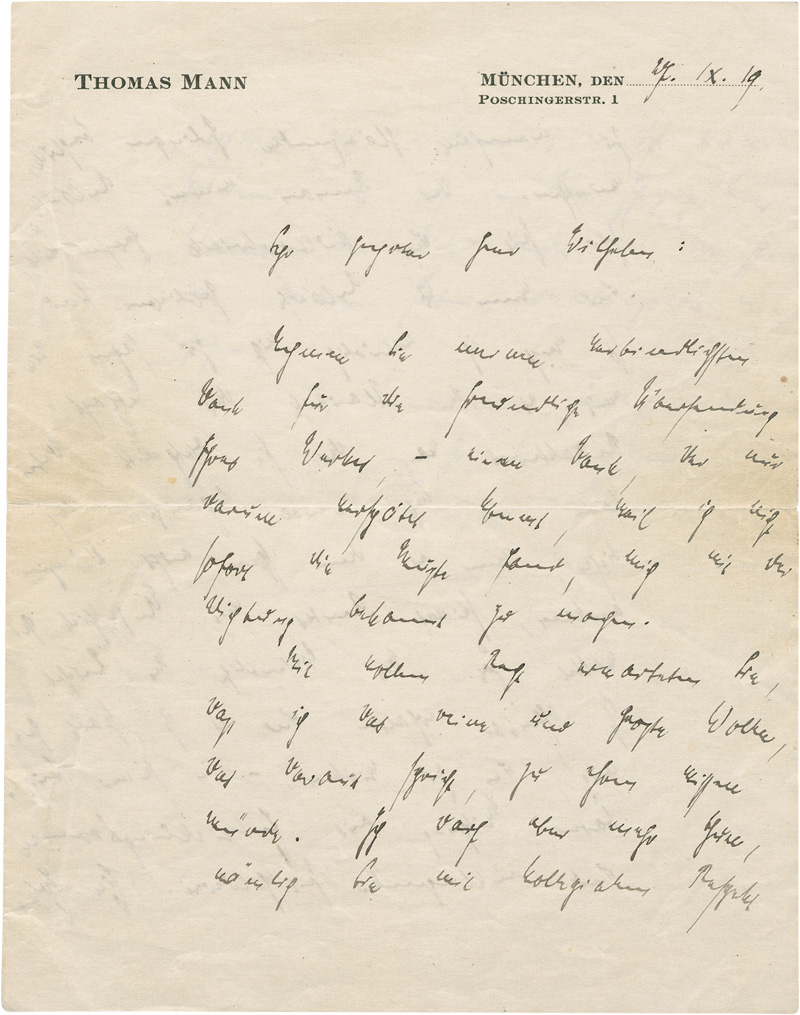 THOMAS MANN
MÜNCHEN, DEN 27. IX. 19.
POSCHINGERSTR. 1
Sehr geehrter Herr Wilhelm:
Nehmen Sie meinen verbindlichsten
Dank für die freundliche Übersendung
Ihres Werkes, – einen Dank, der nur
darum verspätet kommt, weil ich nicht
sofort die Muße fand, mich mit der
Dichtung bekannt zu machen.
Mit vollem Recht erwarteten Sie,
daß ich das reine und große Wollen,
das daraus spricht, zu ehren wissen
würde. Ich darf aber mehr thun,
nämlich Sie mit kollegialem Respekt